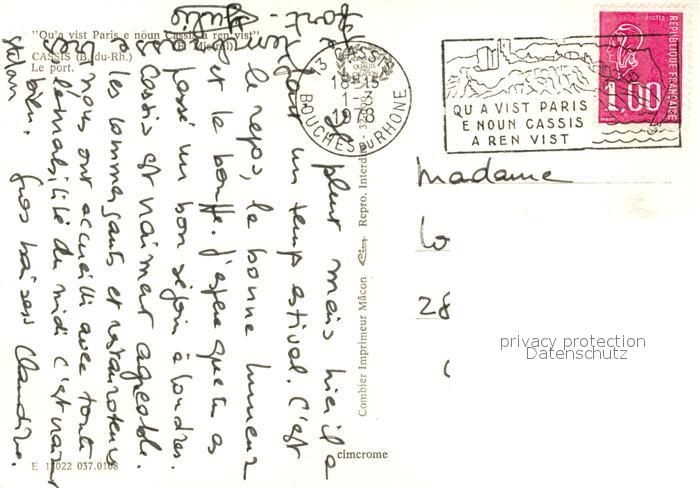 "Qu'a vist Paris e noun Cassis a ren vist"
(F. Mistral)
CASSIS (B.-du-Rh.)
Le port.
il pleut mais hier il a
fait un temps estival. C'est
le repos, la bonne humeur
et la bouffe. J'espère que tu as
passé un bon séjour à Londres.
Cassis est vraiment agréable.
les commerçants et restaurateurs
nous ont accueilli avec toute
l'amabilité du midi c'est vraiment
bien. Gros baisers Claudine.
E 13022 037.0108
Combier Imprimeur Mâcon Cim Repro. Interdite
cimcrome
13 CASSIS
18-15
1-3
1978
BOUCHES DU RHONE
QU A VIST PARIS
E NOUN CASSIS
A REN VIST
POSTES
1,00
REPUBLIQUE FRANÇAISE
Madame
28
privacy protection
Datenschutz